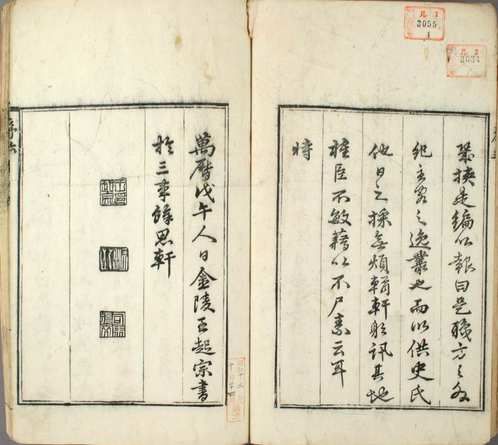 挾是編以報曰是職方之外
紀之逸叢也而以供史氏
他日之採無煩輶軒訊其地
臣不敏藉以不尸素云耳
時
萬曆戊午人日金陵王起宗書
於三事餘思軒